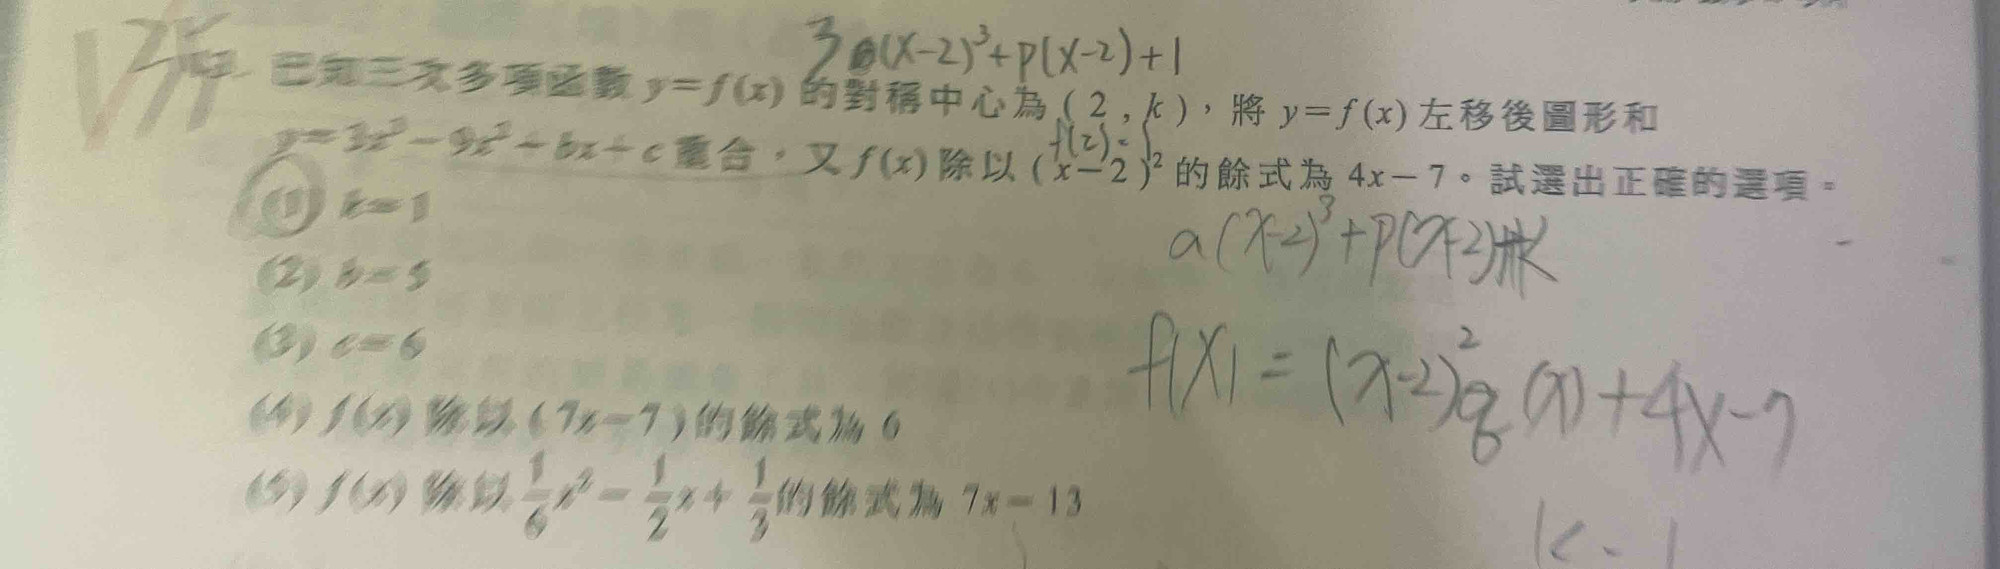 3(x-2)³+p(x-2)+1
已知三次多項函數 y=f(x) 的對稱中心為 ( 2 , k )，將 y=f(x) 左移後圖形和
f(2)=1
y=3x³-9x²+bx+c 重合，又 f(x) 除以 (x-2)² 的餘式為 4x-7。試選出正確的選項。
(1) k=1
a(x-2)³+p(x-2)+k
(2) b=5
(3) c=6
f(x)=(x-2)²q(x)+4x-7
(4) f(x) 除以 (7x-7) 的餘式為 6
(5) f(x) 除以 1/6 x² - 1/2 x + 1/3 的餘式為 7x-13
k=1